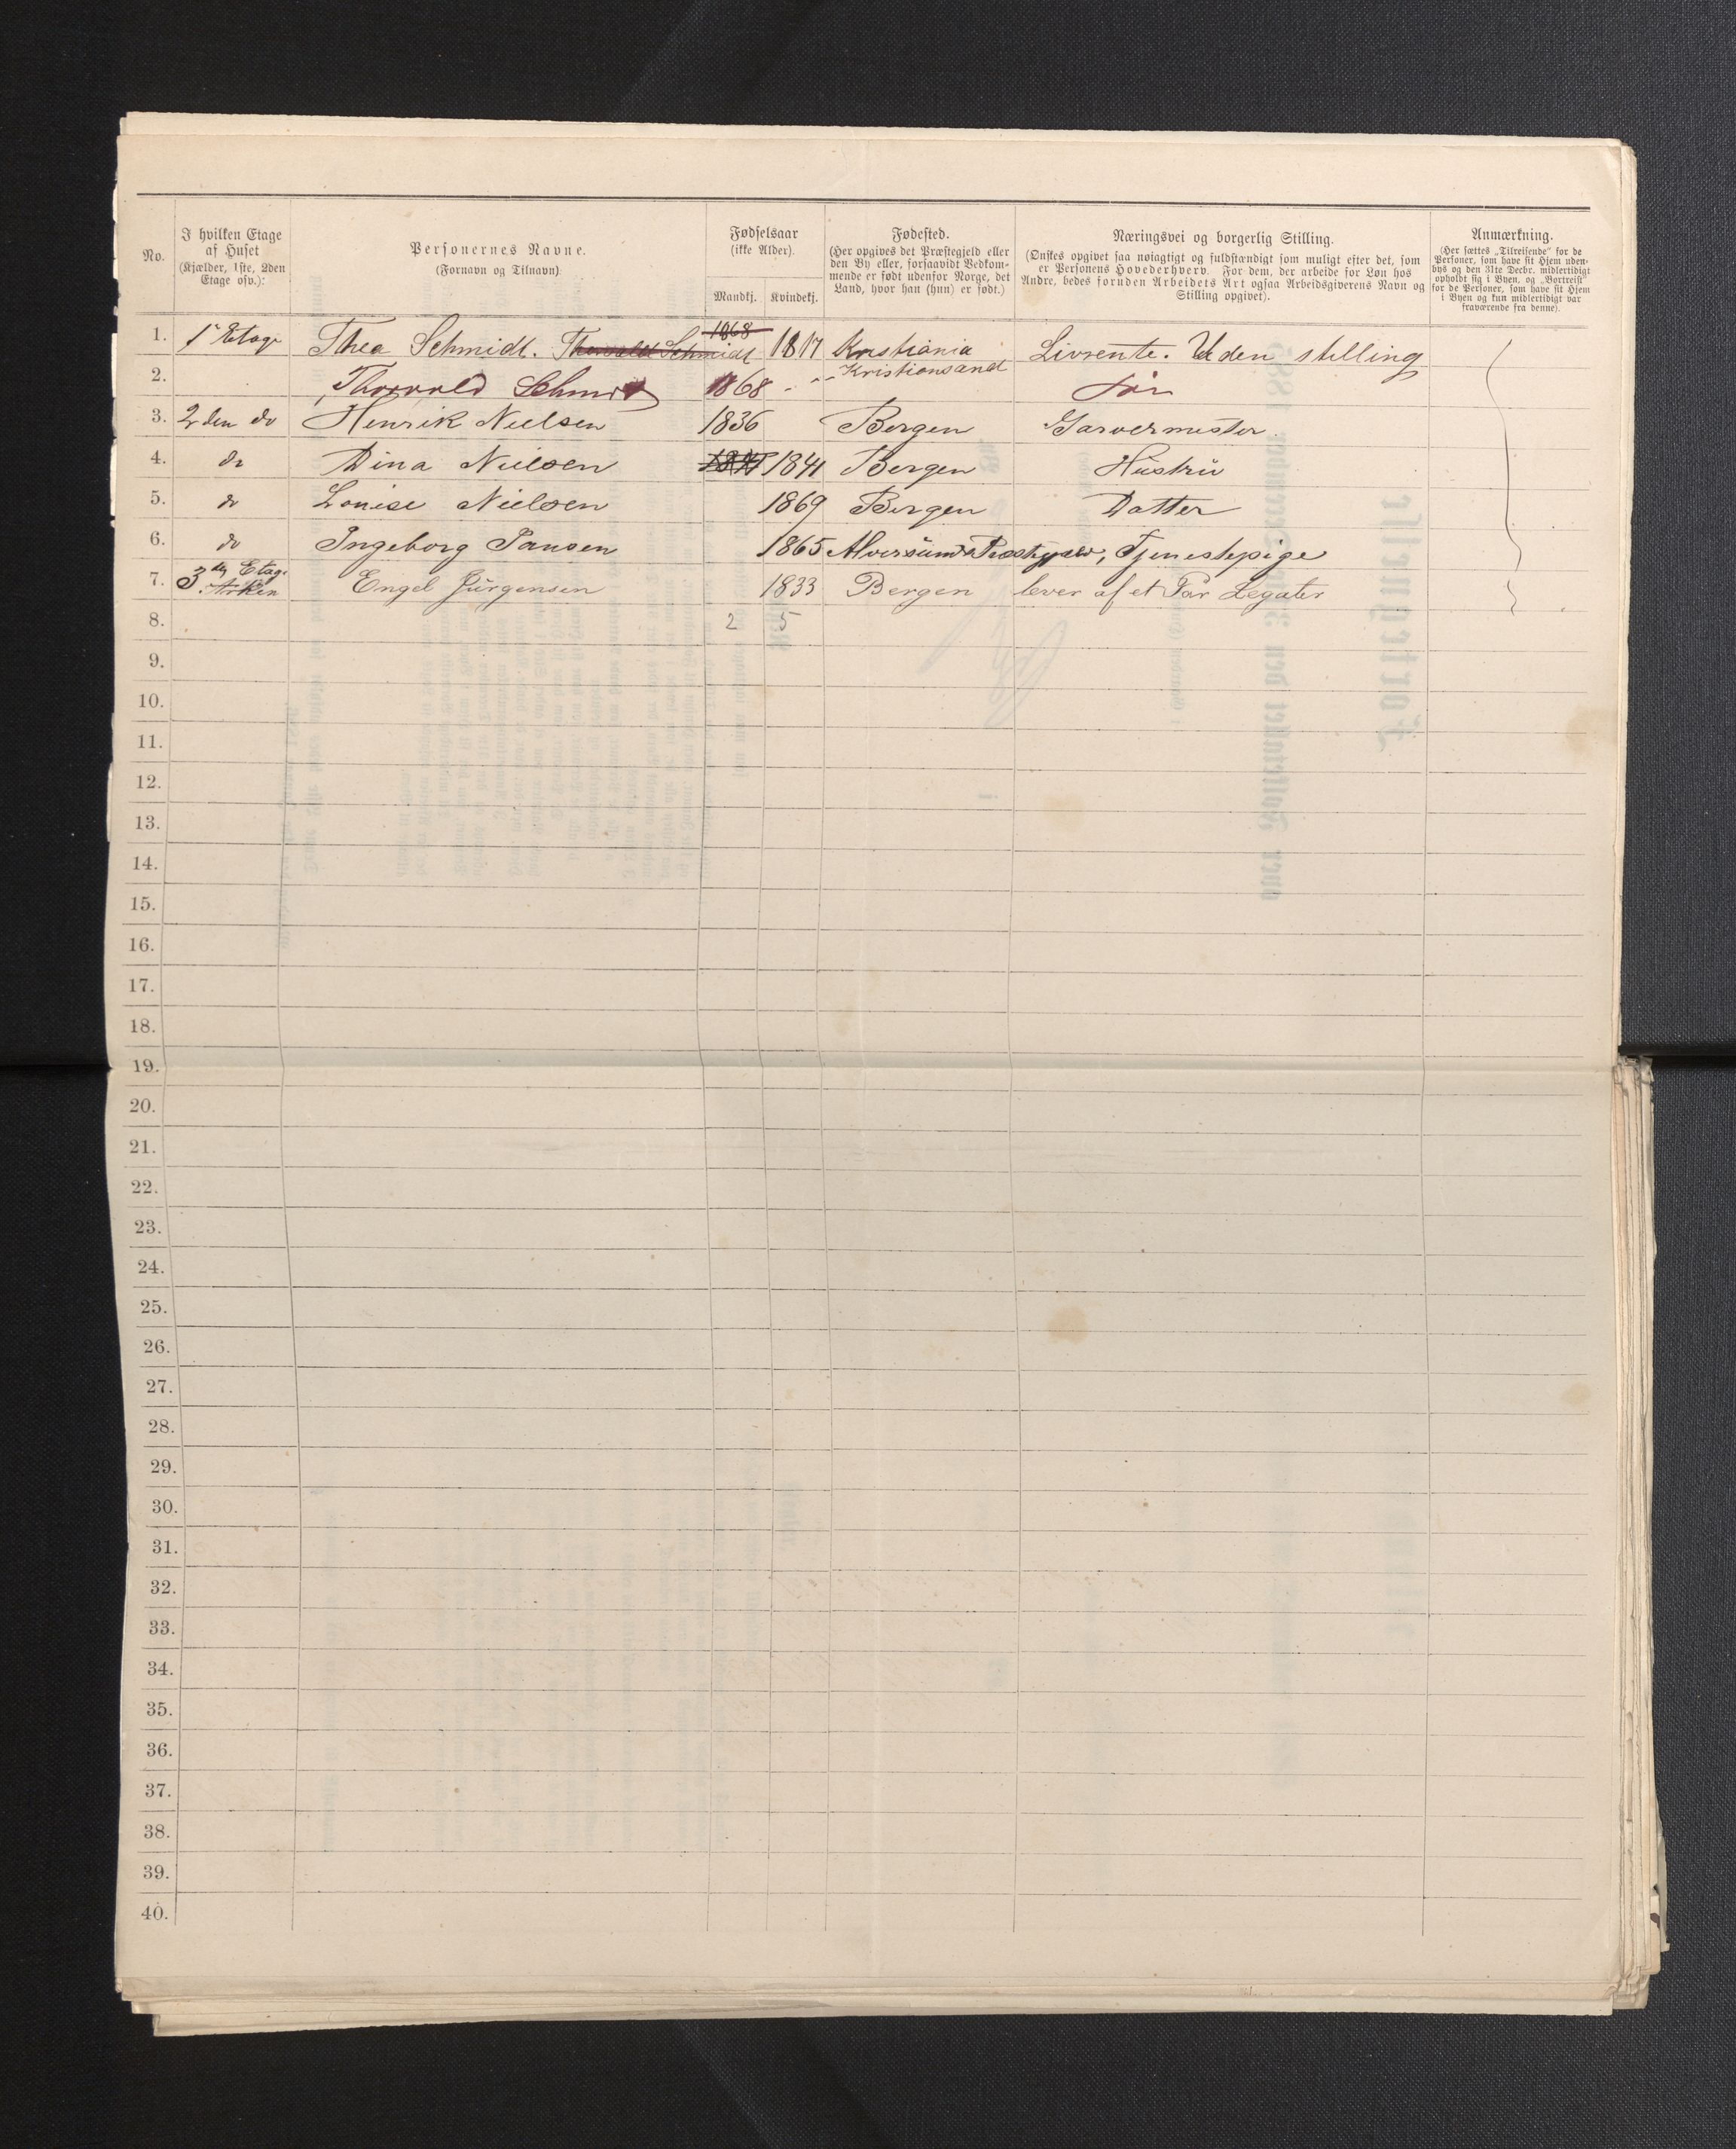 No.
I hvilken Etage
af Huset
(Kjælder, 1ste, 2den
Etage osv.):
Personernes Navne.
(Fornavn og Tilnavn)
Fødselsaar
(ikke Alder).
Mandkj. Kvindekj.
Fødested.
(Her opgives det Præstegjeld eller
den By eller, forsaavidt Vedkom-
mende er født udenfor Norge, det
Land, hvor han (hun) er født.)
Næringsvei og borgerlig Stilling.
(Ønskes opgivet saa nøiagtigt og fuldstændigt som muligt efter det, som
er Personens Hovederhverv. For dem, der arbeide for Løn hos
Andre, bedes foruden Arbeidets Art ogsaa Arbeidsgiverens Navn og
Stilling opgivet).
Anmærkning.
(Her sættes „Tilreisende“ for de
Personer, som have sit Hjem uden-
bys og den 31te Decbr. midlertidigt
opholdt sig i Byen, og „Bortreist“
for de Personer, som have sit Hjem
i Byen og kun midlertidigt var
fraværende fra denne).
1868
1. 1ste Etage Thea Schmidt. Thorvald Schmidt 1817 Kristiania Livrente. Uden stilling
2. Thorvald Schmidt 1868 - " Kristiansand Søn
3. 2den do Henrik Nielsen 1836 Bergen Garvermester.
4. do Dina Nielsen 1841 1841 Bergen Hüstrü
5. do Louise Nielsen 1869 Bergen Datter
6. do Ingeborg Jansen 1865 Alversund Præstegjeld, Tjenestepige
7. 3die Etage. Arken Engel Jürgensen 1833 Bergen lever af et Par Legater
8. 2 5
9.
10.
11.
12.
13.
14.
15.
16.
17.
18.
19.
20.
21.
22.
23.
24.
25.
26.
27.
28.
29.
30.
31.
32.
33.
34.
35.
36.
37.
38.
39.
40.